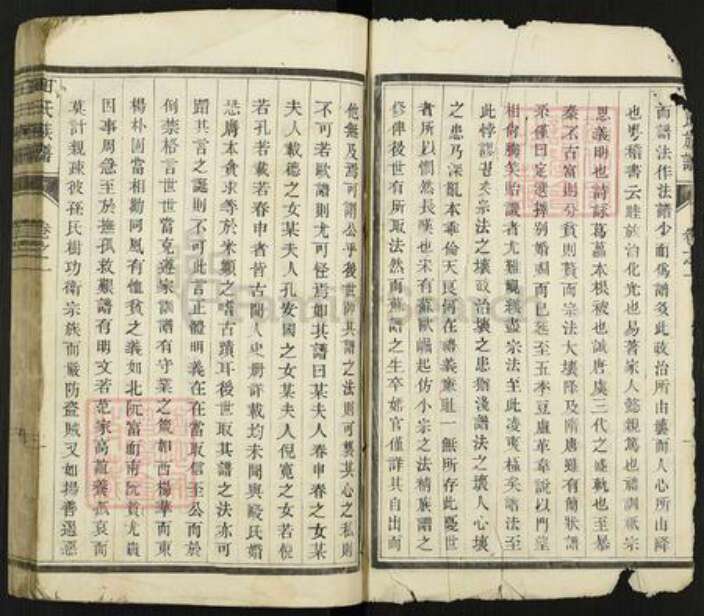 而譜法作法譜少而為譜及此政治所由壞而人心所由降
也學稽書云睦族治化光也易著家人懿親篤也禮訓祇宗
思義明也詩詠葛藟本根被也誠唐虞三代之盛軌也至暴
秦不古富則分貧則贅而宗法大壞降及隋唐雖有簡狀譜
系僅曰定選擇別婚姻而已延至五季豆盧革韋說以門望
相尚騰笑貽譏者尤難縷盡宗法至此凌夷極矣譜法至
此悖謬甚矣宗法之壞政治壞之患猶淺譜法之壞人心壞
之患乃深亂本乖倫天良何在嗜義廉恥一無所存此憂世
者所以惘然長嘆也宋有蘇歐崛起仿小宗之法精族譜之
修俾後世有所取法然而蘇譜之生卒妣官僅詳其自出而
他無及焉可謂公乎後世師其譜之法則可襲其心之私則
不可若歐譜則尤可怪焉如其譜曰某夫人春申春之女某
夫人載德之女某夫人孔安國之女某夫人倪寬之女若倪
若孔若戴若春申者皆古聞人史冊詳載均未聞與歐氏婚
恐厲本貪求等於米顛之嗜古蹟耳後世取其譜之法亦可
躓其言之誕則不可此言正體明義在在當取信至公而於
倒禁格言世世當克遵家訓譜有守業之箴如西楊華而東
楊朴固當相勸阿鳳有恤貧之義如北阮富而南阮貧尤貴
因事周急至於撫孤救艱譜有明文若范家高義養煢哀而
莫計親疎彼孫氏樹功衛宗族而嚴防盜賊又如揚善遏惡
氏族譜
卷之一